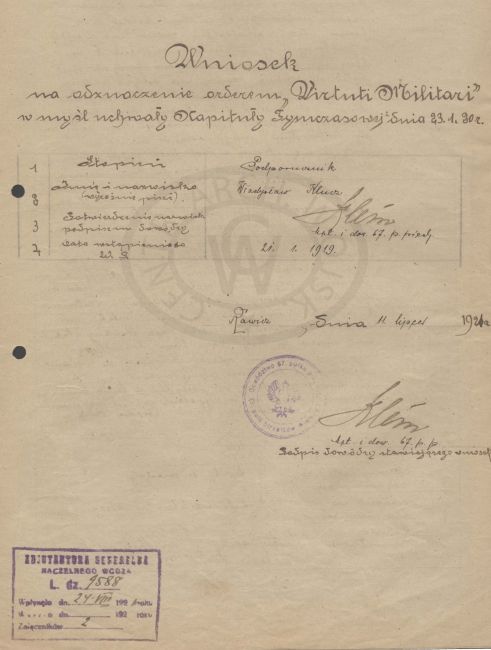 Wniosek
na odznaczenie orderem „Virtuti Militari"
w myśl uchwały Kapituły Tymczasowej dnia 23.1.20r.
1 Stopień Podporucznik
2 Imię i nazwisko Władysław Klucz
(wyraźnie pisać).
3 Potwierdzenie nazwisk
podpisem dowódcy
Klem
kpt. i dow. 67. p. piech.
4 Data wstąpienia 21. 1. 1919.
do W.P.
Rawicz, dnia 11 lipca 1921
Dowództwo 67. pułku
Klem
kpt. i dow. 67. p. p.
Podpis dowódcy stawiającego wniosek
ADJUTANTURA GENERALNA
NACZELNEGO WODZA
L. dz. 9588
Wpłynęło dn. 24 VIII 1921 roku
dn. 192 roku
Załączników 2
CENTRALNE ARCHIWUM WOJSKOWE